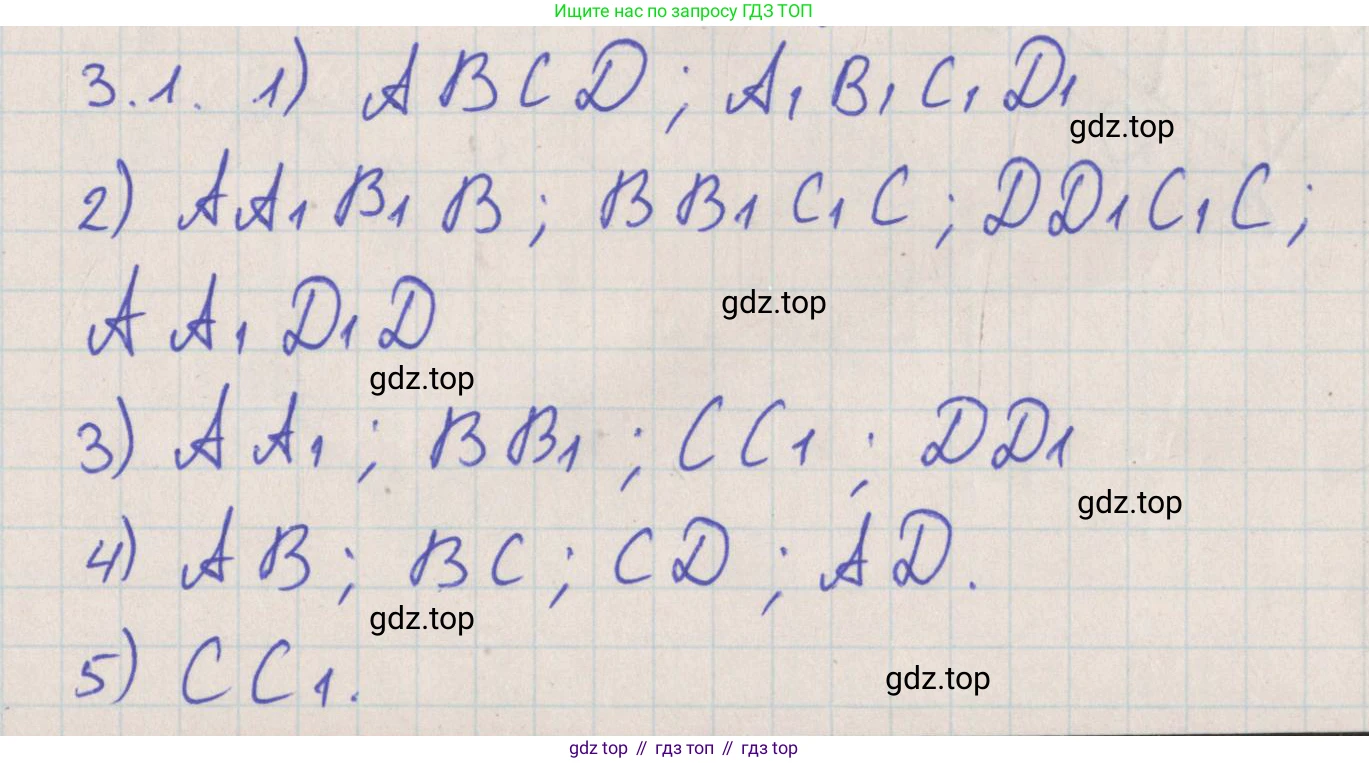 Ищите нас по запросу ГДЗ ТОП
3.1. 1) A B C D; A₁ B₁ C₁ D₁
gdz.top
2) A A₁ B₁ B; B B₁ C₁ C; D D₁ C₁ C;
A A₁ D₁ D
gdz.top
gdz.top
3) A A₁; B B₁; C C₁; D D₁
gdz.top
4) A B; B C; C D; A D.
gdz.top
5) C C₁.
gdz.top
gdz top // гдз топ // гдз top